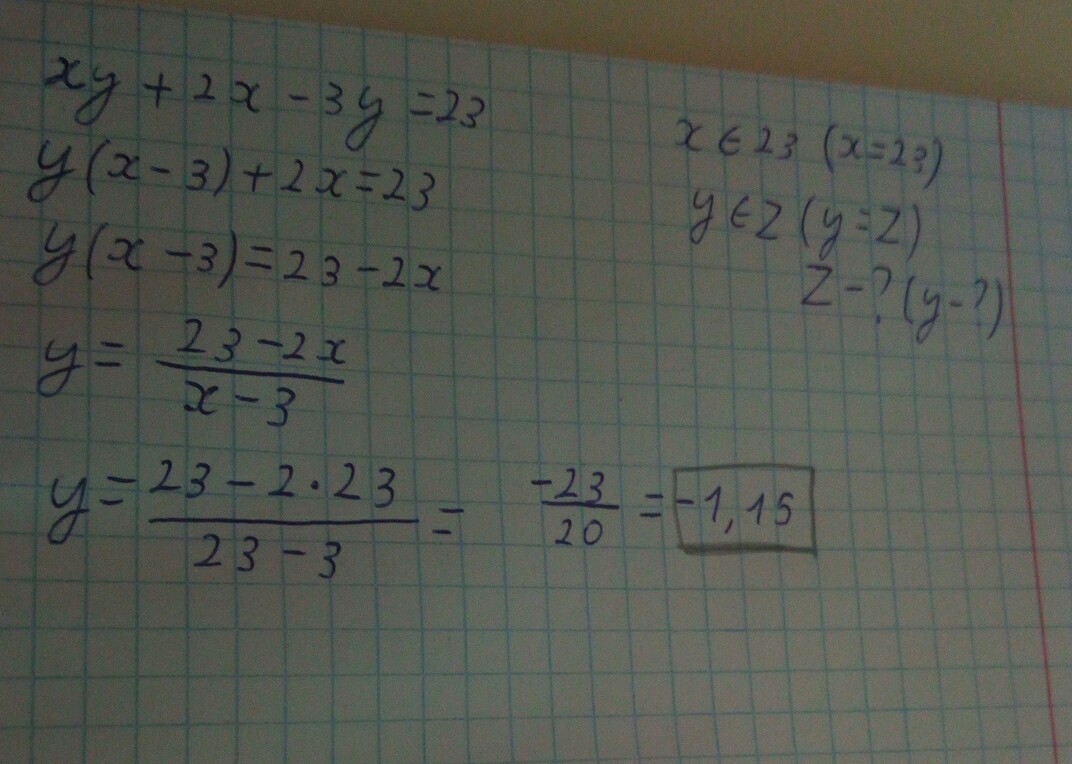 xy + 2x - 3y = 23
y(x - 3) + 2x = 23
y(x - 3) = 23 - 2x
y = \frac{23 - 2x}{x - 3}
y = \frac{23 - 2 · 23}{23 - 3} = \frac{-23}{20} = -1,15
x ∈ 23 (x = 23)
y ∈ Z (y = Z)
Z - ? (y - ?)